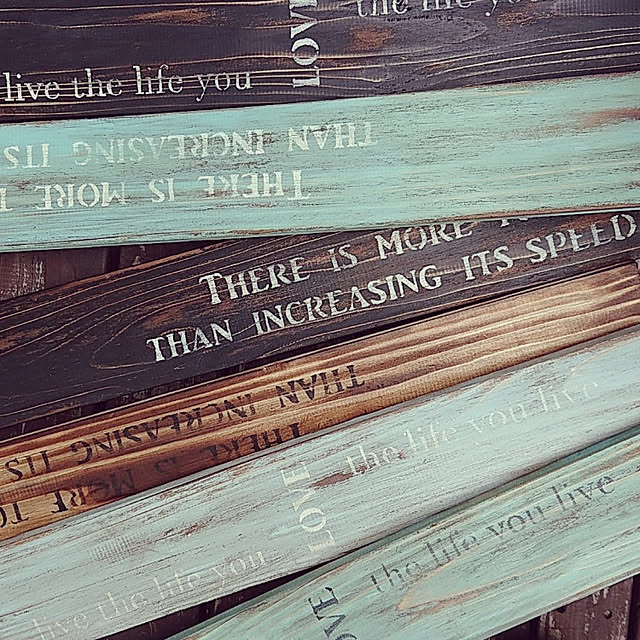 the life you
LOVE
live the life you
THERE IS MORE T
THAN INCREASING ITS
THERE IS MORE
THAN INCREASING ITS SPEED
THERE IS MORE TO
THAN INCREASING ITS
the life you live
LOVE
live the life you
the life you live
LOVE